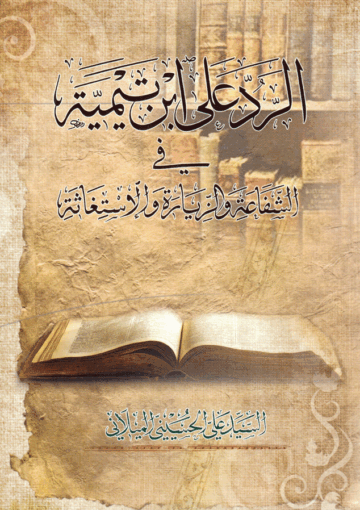 الرَّدُّ عَلىٰ ابْنِ تَيْمِيَّة
في
الشَّفَاعَةِ وَالزِّيَارَةِ وَالْاسْتِغَاثَةِ
السَّيِّد عَلي الحُسَيْني الميلاني